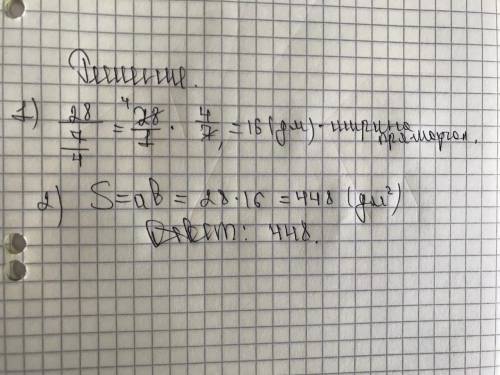 Решение.
1) 28/(7/4) = 28/1 · 4/7 = 16 (дм) - ширина прямоугол.
2) S = ab = 28 · 16 = 448 (дм²)
Ответ: 448.